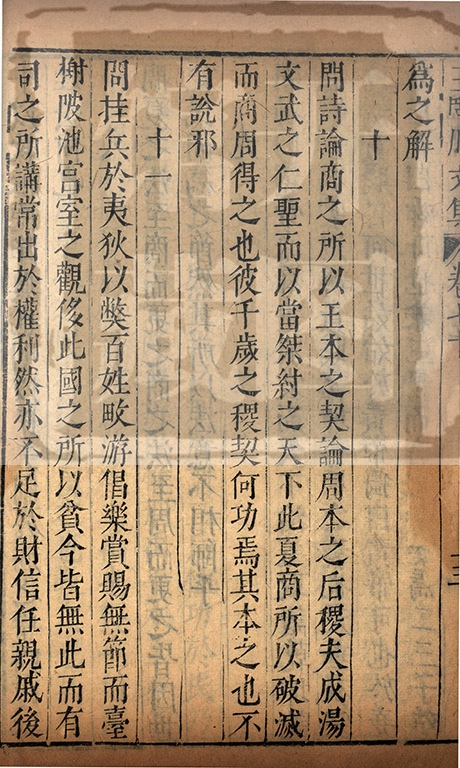 爲之解
十
問詩論商之所以王本之契論周本之后稷夫成湯
文武之仁聖而以當桀紂之天下此夏商所以破滅
而商周得之也彼千歲之稷契何功焉其本之也不
有說邪
十一
問挂兵於夷狄以獘百姓畋游倡樂賞賜無節而臺
榭陂池宫室之觀侈此國之所以貧今皆無此而有
司之所講常出於權利然亦不足於財信任親戚後